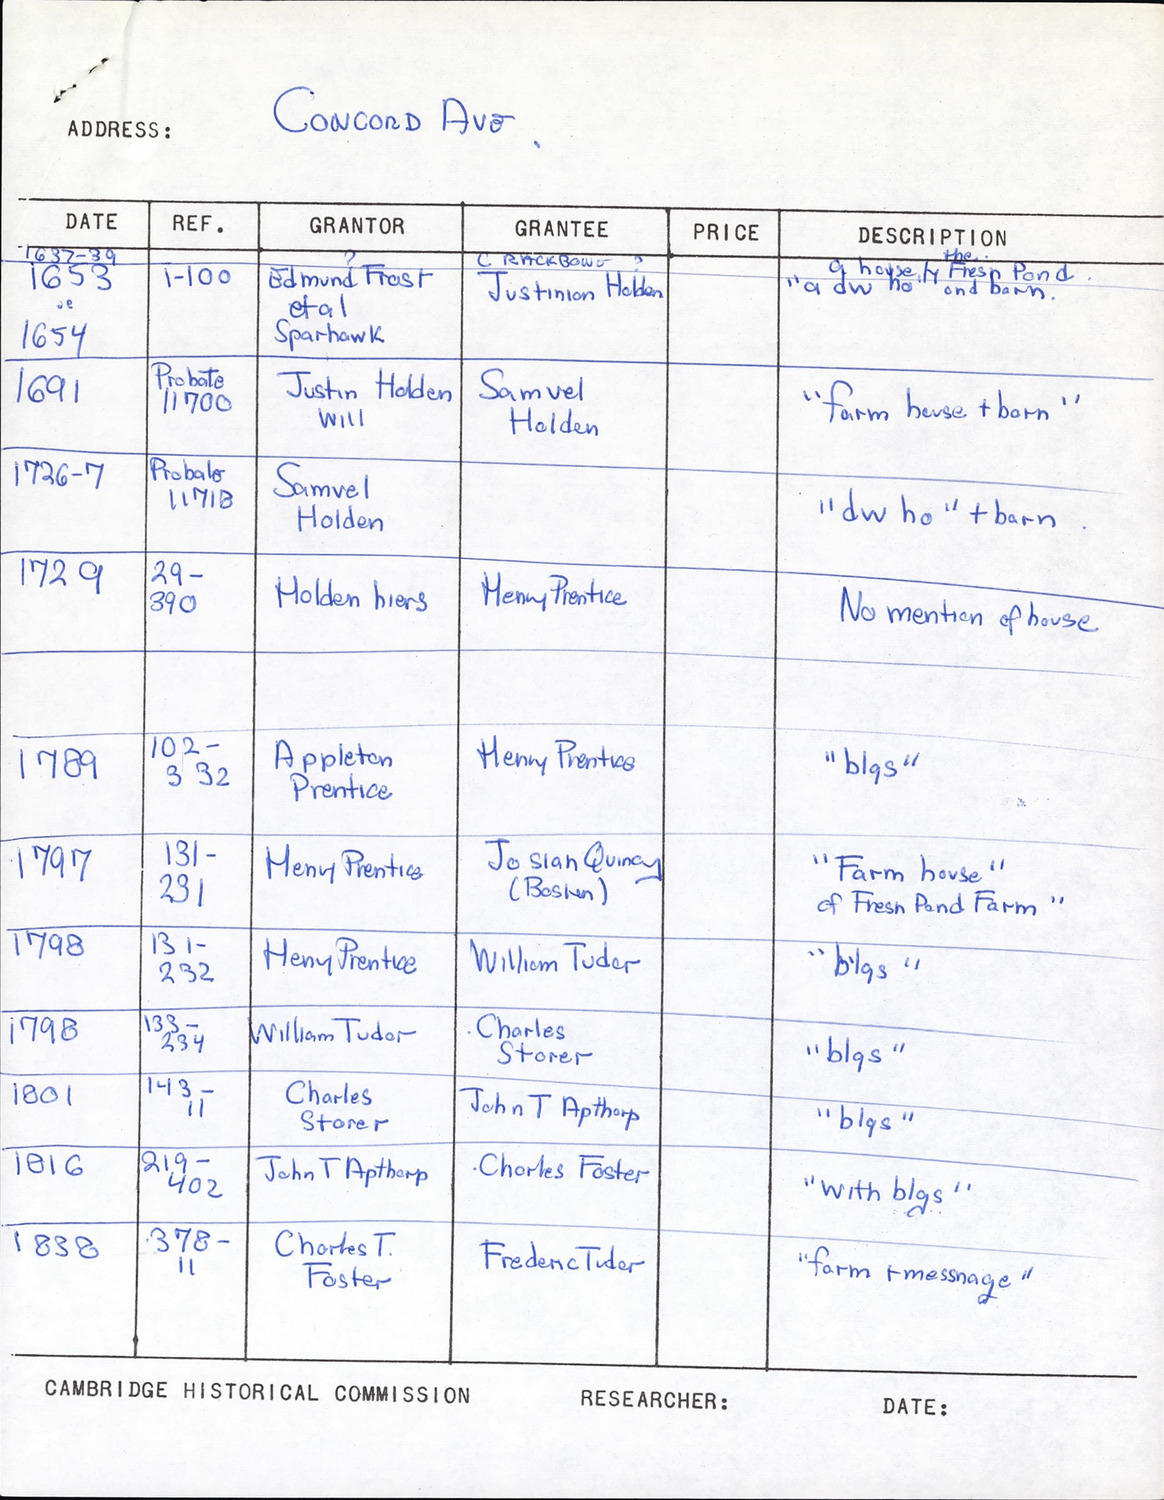 ADDRESS: CONCORD AVE.
DATE REF. GRANTOR GRANTEE PRICE DESCRIPTION
1637-39 ? C RACKBONE ? a house by the Fresh Pond.
1653 1-100 Edmund Frost Justinion Holden "a dw ho and barn.
et al
1654 Sparhawk
1691 Probate Justin Holden Samuel "farm house + barn"
11700 Will Holden
1726-7 Probate Samuel "dw ho" + barn.
11718 Holden
1729 29- Holden hiers Henry Prentice No mention of house
390
1789 102- Appleton Henry Prentice "blgs"
332 Prentice
1797 131- Henry Prentice Josiah Quincy "Farm house"
231 (Boston) of Fresh Pond Farm"
1798 131- Henry Prentice William Tudor "blgs"
232
1798 133- William Tudor Charles "blgs"
234 Storer
1801 143- Charles John T Apthorp "blgs"
11 Storer
1816 219- John T Apthorp Charles Foster "with blgs"
402
1838 378- Charles T. Frederic Tudor "farm + messnage"
11 Foster
CAMBRIDGE HISTORICAL COMMISSION RESEARCHER: DATE: